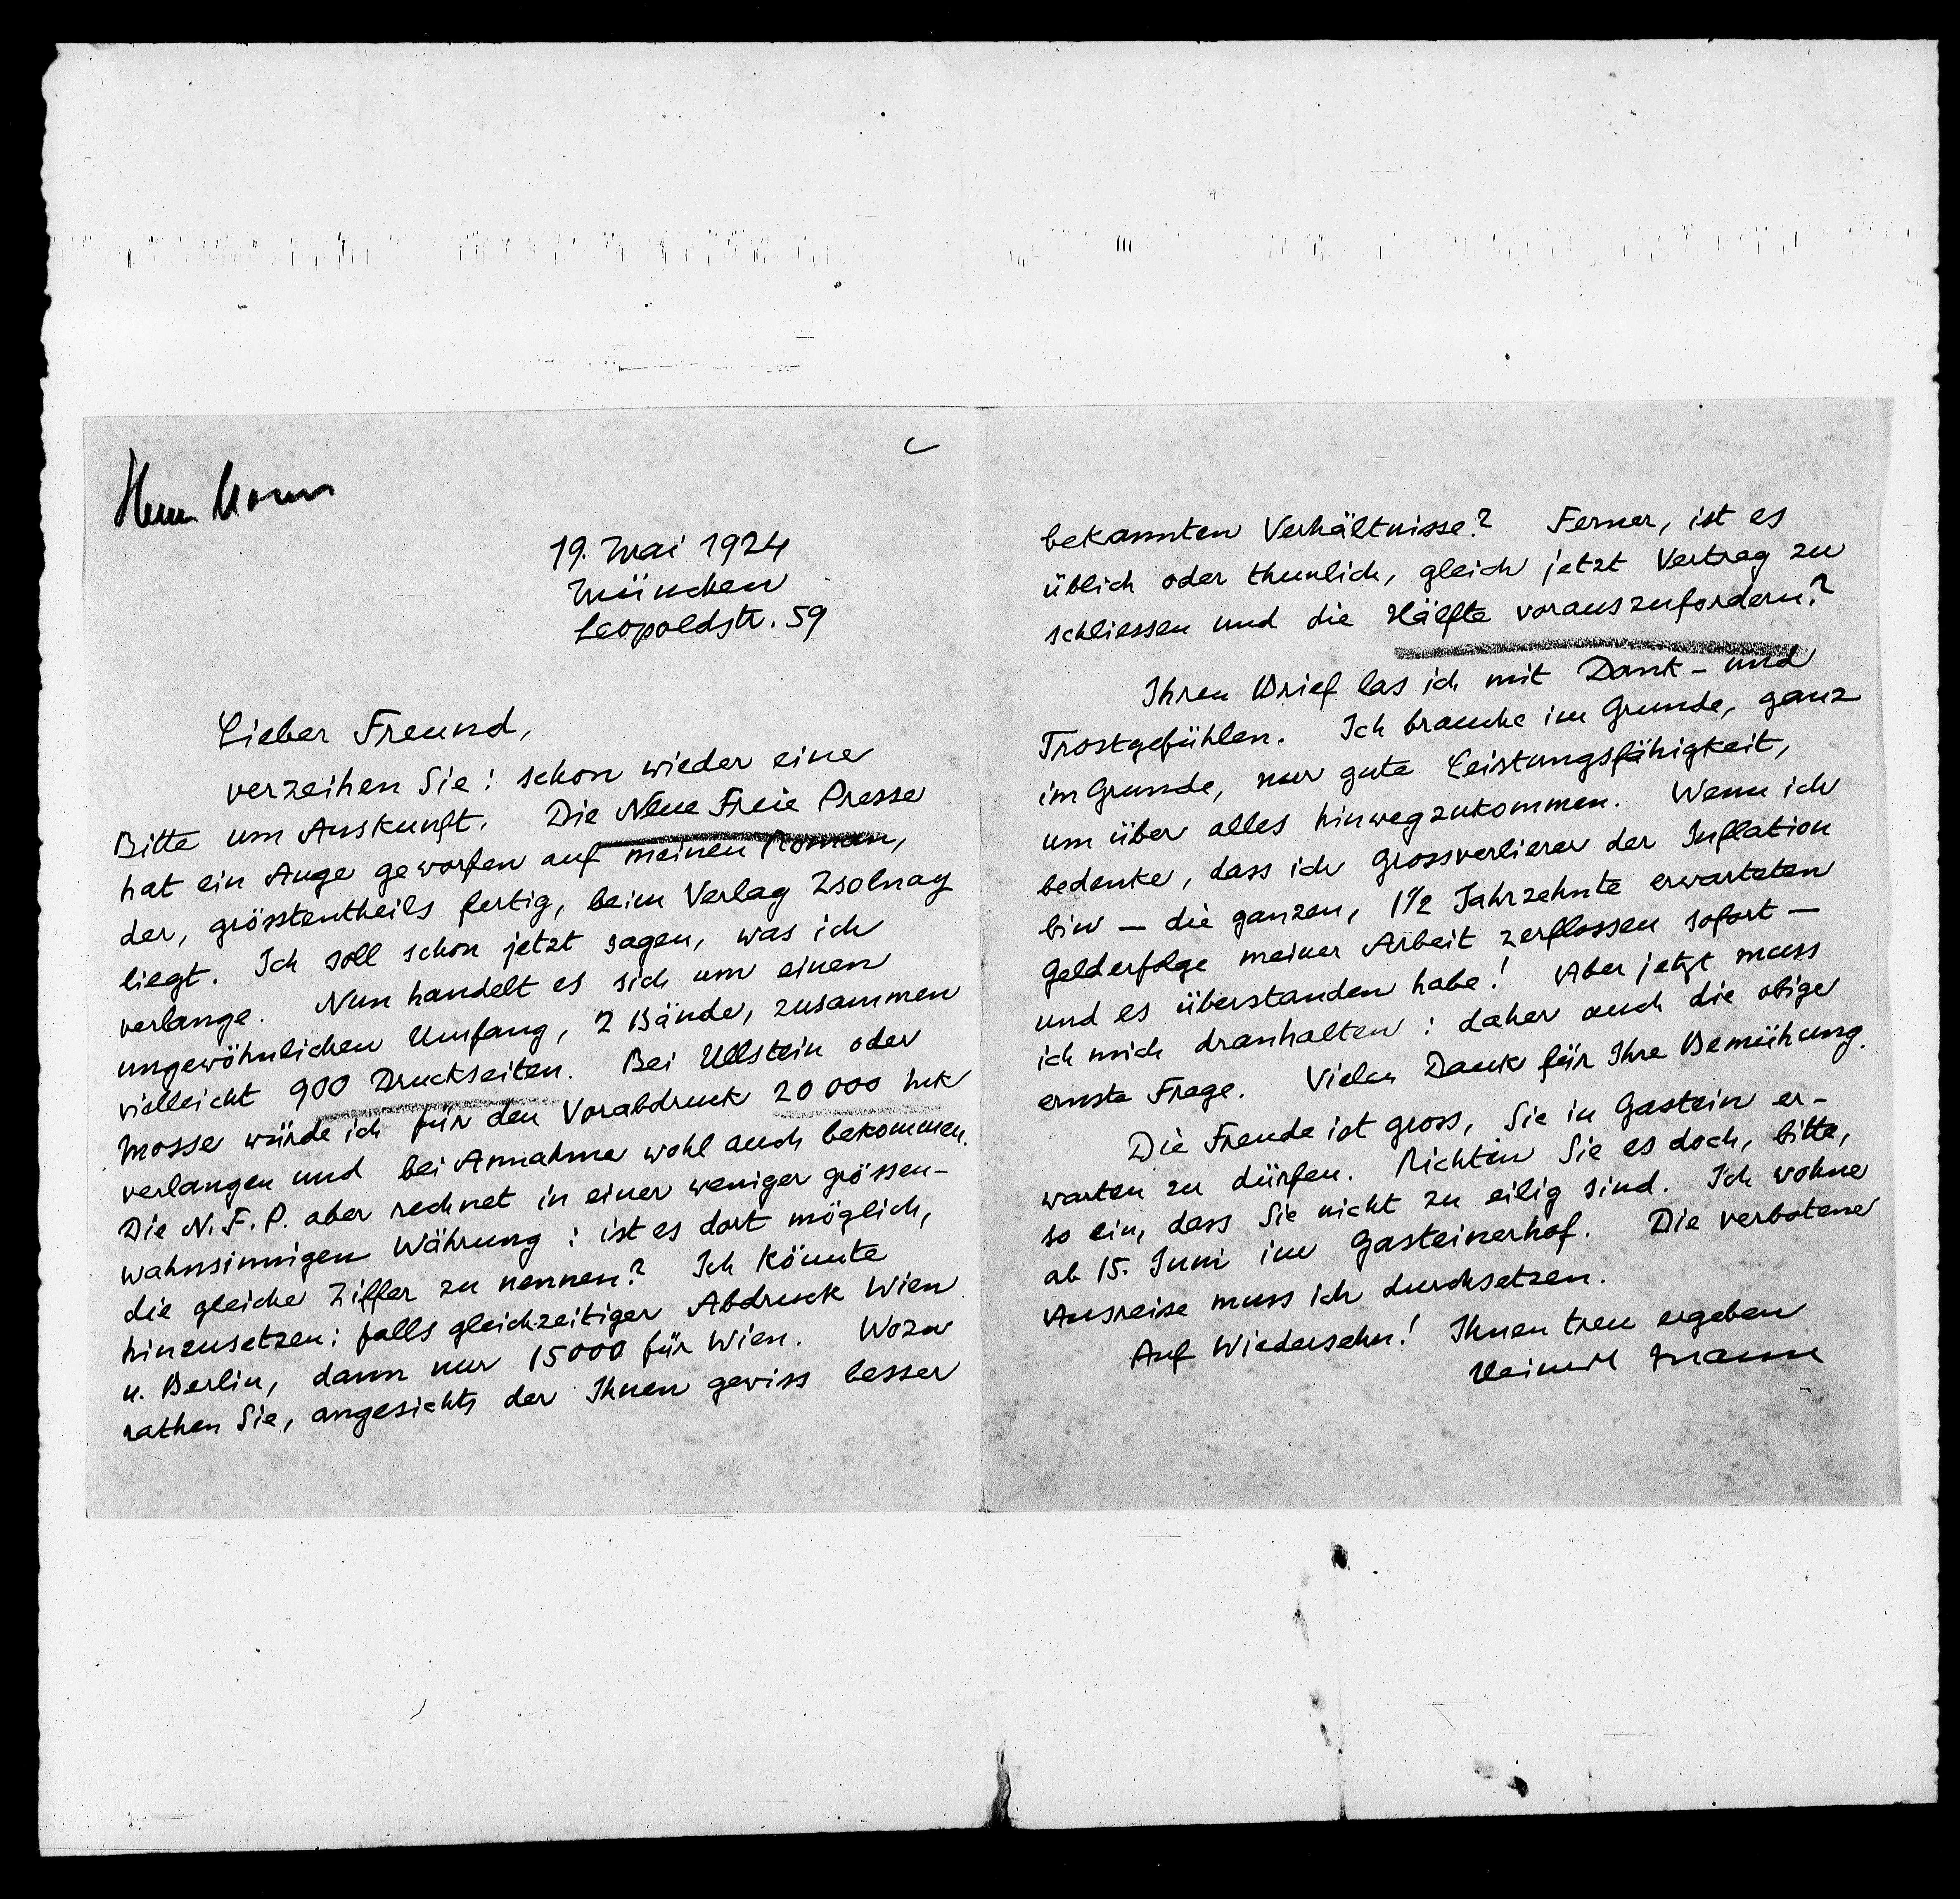 19. Mai 1924
München
Leopoldstr. 59
Lieber Freund,
verzeihen Sie: schon wieder eine
Bitte um Auskunft. Die Neue Freie Presse
hat ein Auge geworfen auf meinen Roman,
der, grösstentheils fertig, beim Verlag Zsolnay
liegt. Ich soll schon jetzt sagen, was ich
verlange. Nun handelt es sich um einen
ungewöhnlichen Umfang, 2 Bände, zusammen
vielleicht 900 Druckseiten. Bei Ullstein oder
Mosse würde ich für den Vorabdruck 20 000 Mk
verlangen und bei Annahme wohl auch bekommen.
Die N. F. P. aber rechnet in einer weniger grössen-
wahnsinnigen Währung: ist es dort möglich,
die gleiche Ziffer zu nennen? Ich könnte
hinzusetzen: falls gleichzeitiger Abdruck Wien
u. Berlin, dann nur 15000 für Wien. Wozu
rathen Sie, angesichts der Ihnen gewiss besser
bekannten Verhältnisse? Ferner, ist es
üblich oder thunlich, gleich jetzt Vertrag zu
schliessen und die Hälfte vorauszufordern?
Ihren Brief las ich mit Dank- und
Trostgefühlen. Ich brauche im Grunde, ganz
im Grunde, nur gute Leistungsfähigkeit,
um über alles hinwegzukommen. Wenn ich
bedenke, dass ich Grossverlierer der Inflation
bin — die ganzen, 1½ Jahrzehnte erwarteten
Gelderfolge meiner Arbeit zerflossen sofort —
und es überstanden habe! Aber jetzt muss
ich mich dranhalten: daher auch die obige
ernste Frage. Vielen Dank für Ihre Bemühung.
Die Freude ist gross, Sie in Gastein er-
warten zu dürfen. Richten Sie es doch, bitte,
so ein, dass Sie nicht zu eilig sind. Ich wohne
ab 15. Juni im Gasteinerhof. Die verbotene
Ausreise muss ich durchsetzen.
Auf Wiedersehn! Ihnen treu ergeben
Heinrich Mann